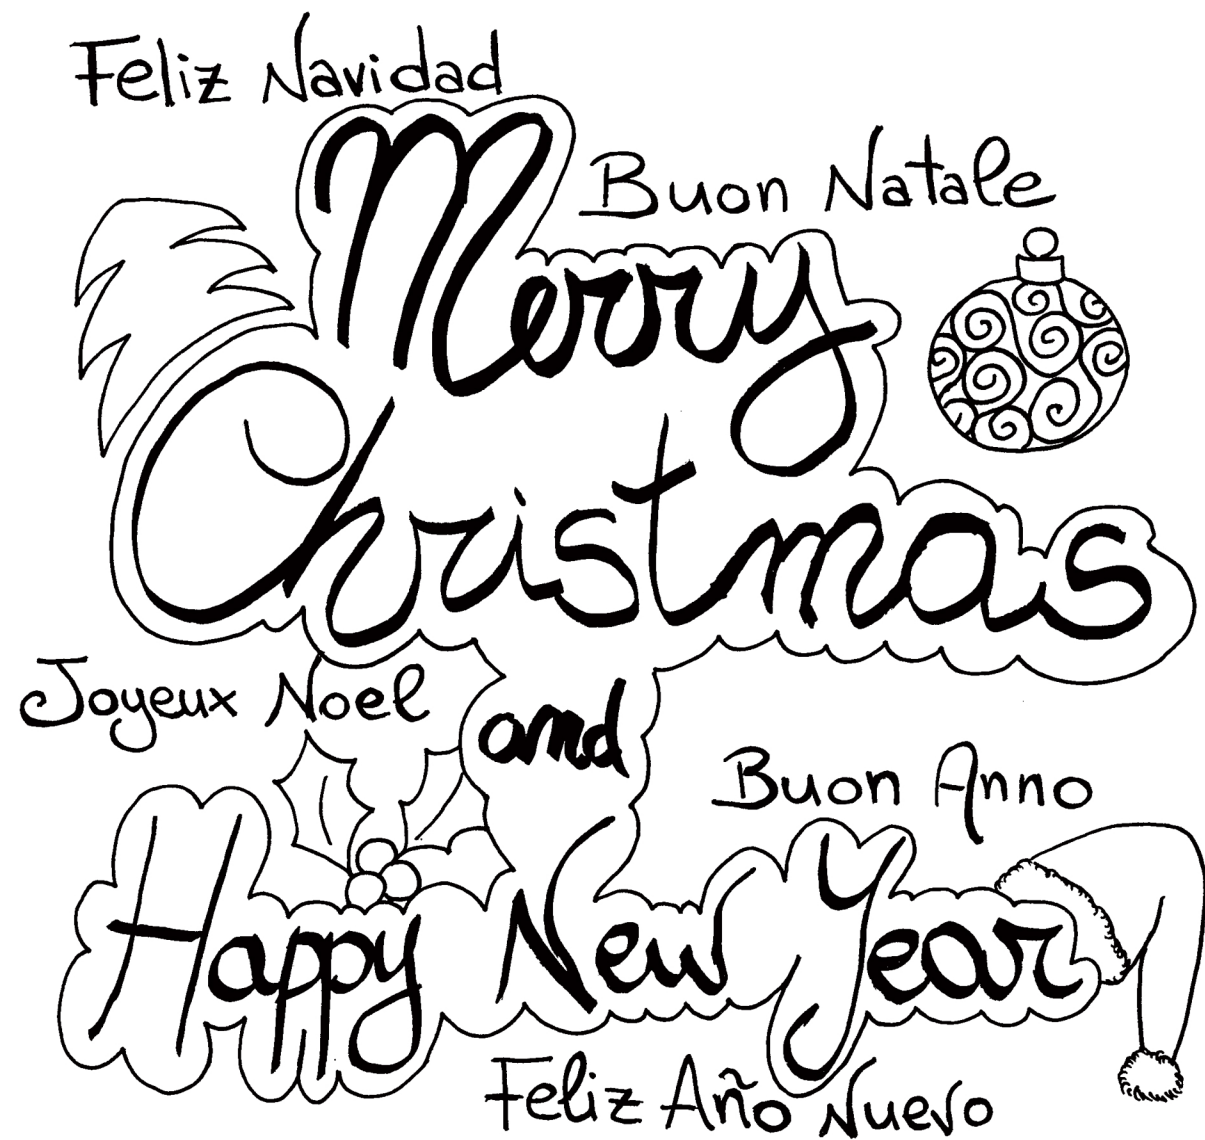 Feliz Navidad
Buon Natale
Merry
Christmas
Joyeux Noel
and
Buon Anno
Happy New Year
Feliz Año Nuevo